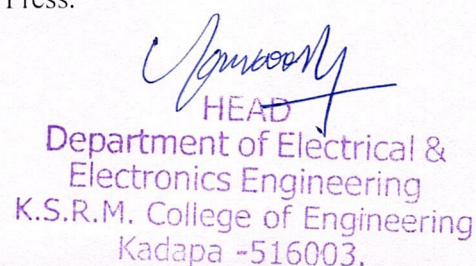 Press.
HEAD
Department of Electrical &
Electronics Engineering
K.S.R.M. College of Engineering
Kadapa -516003.